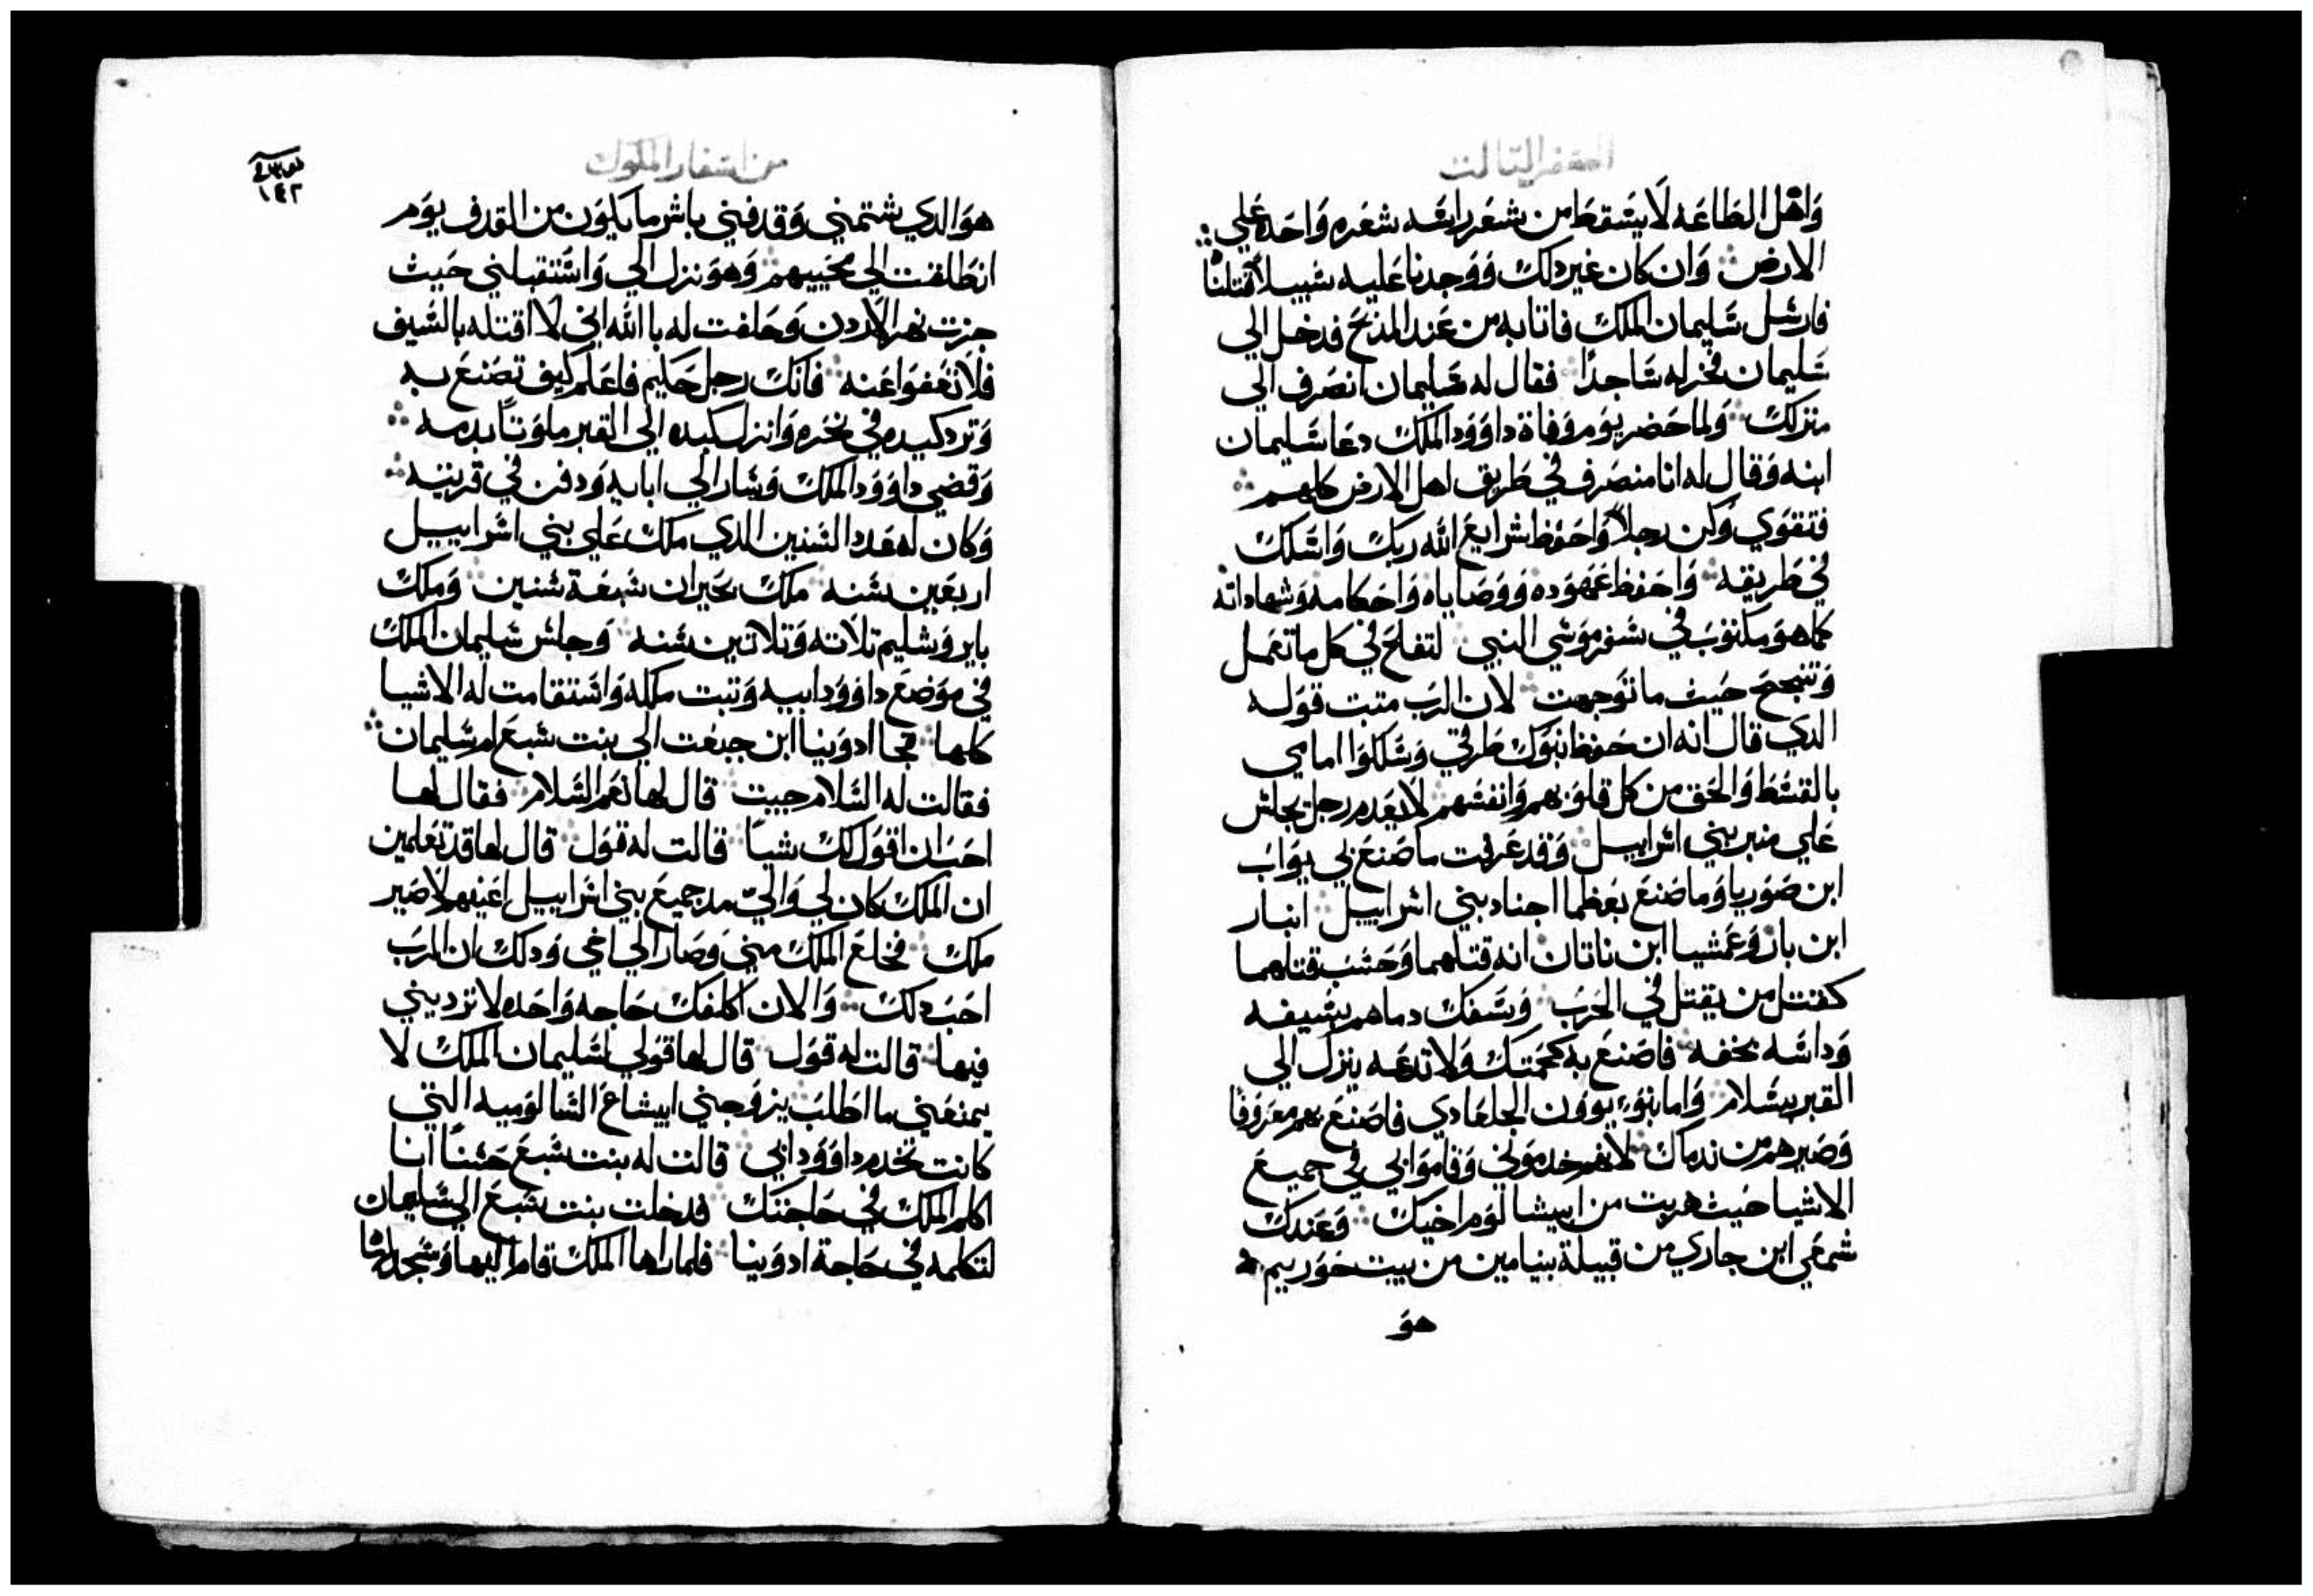 السفر التالت
واهل الطاعه لا يسقط من شعر راسه شعره واحده علي
الارض وان كان غير دلك ووجدنا عليه سبيلا قتلناه
فارسل سليمان الملك فاتا به من عند المدبح فدخل الي
سليمان فخر له ساجدا فقال له سليمان انصرف الي
منزلك ولما حضر يوم وفاة داوود الملك دعا سليمان
ابنه وقال له انا منصرف في طريق اهل الارض كلهم
فتقوي وكن رجلا واحفظ شرايع الله ربك واسلك
في طريقه واحفظ عهوده ووصاياه واحكامه وشهاداته
كما هو مكتوب في سفر موسي النبي لتفلح في كل ما تعمل
وتنجح حيث ما توجهت لان الرب متبت قوله
الدي قال انه ان حفظ بنوك طرقي وسلكوا امامي
بالقسط والحق من كل قلوبهم وانفسهم لا يعدم رجل يجلس
علي منبر بني اسراييل وقد عرفت ما صنع بي يواب
ابن صوريا وما صنع بعظما اجناد بني اسراييل ابنار
ابن بار وعمشيا ابن ناتان انه قتلهما وحسب قتلهما
كقتل من يقتل في الحرب وسفك دماهم بسيفه
وداسه بخفه فاصنع به كحكمتك ولا تدعه ينزل الي
القبر بسلام واما بنوا يوون الجلعادي فاصنع بهم معروفا
وصيرهم من ندماك لانهم خدموني وقاموا لي في جميع
الاشيا حيث هربت من ابيشالوم اخيك وعندك
شمعي ابن جاري من قبيلة بنيامين من بيت حوريم
هو
من اسفار الملوك
١٤٢
هو الدي شتمني وقدفني باشر ما يكون من القدف يوم
انطلقت الي محنييهم وهو نزل الي واستقبلني حيث
جزت نهر الاردن وحلفت له بالله اني لا اقتله بالسيف
فلا تعفوا عنه فانك رجل حليم فاعلم كيف تصنع به
وترد كيده في نحره وانزل كيده الي القبر ملوتا بدمه
وقضي داوود الملك وسار الي ابايه ودفن في قريته
وكان له عدد السنين الدي ملك علي بني اسراييل
اربعين سنه ملك بحيران سبعة سنين وملك
بايروشليم تلاته وتلاتين سنه وجلس سليمان الملك
في موضع داوود ابيه وتبت ملكه واستقامت له الاشيا
كلها فجا ادونيا ابن حجيت الي بنت شبع ام سليمان
فقالت له السلام جيت قال لها نعم السلام فقال لها
احب ان اقول لك شيا قالت له قول قال لها قد تعلمين
ان الملك كان لي والي مد جميع بني اسراييل اعينهم لاصير
ملك فخلع الملك مني وصار الي اخي ودلك ان الرب
احب دلك والان اكلفك حاجه واحده لا ترديني
فيها قالت له قول قال لها قولي لسليمان الملك لا
يمنعني ما اطلب يزوجني ابيشاع الشالوميه التي
كانت تخدم داوود ابي قالت له بنت شبع حسنا انا
اكلم الملك في حاجتك فدخلت بنت شبع الي سليمان
لتكلمه في حاجة ادونيا فلما راها الملك قام اليها وسجد لها